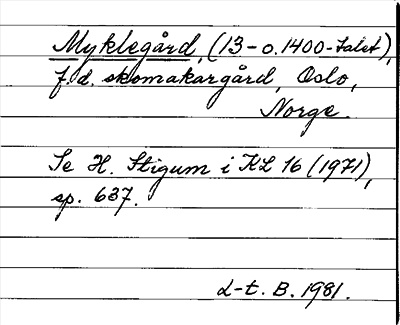 Myklegård, (13- o. 1400-talet),
f. d. skomakargård, Oslo,
Norge.
Se H. Stigum i KL 16 (1971),
sp. 637.
L-t. B. 1981.